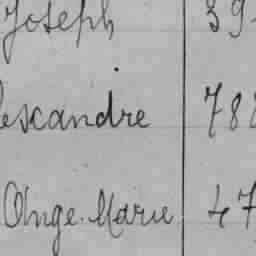 Joseph 39
lescandre 788
Ange Marie 47